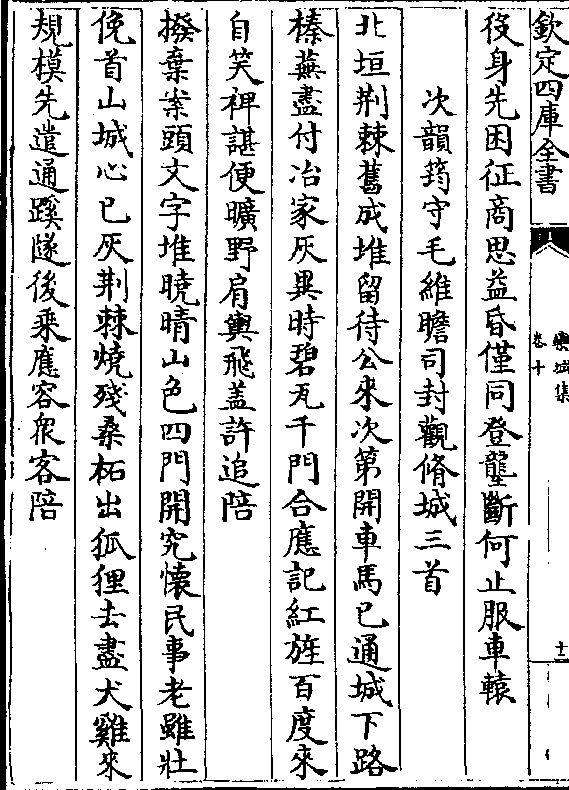 欽定四庫全書
欒城集
卷十
十一
役身先困征商思益昏僅同登壟斷何止服車轅
次韻筠守毛維瞻司封觀脩城三首
北垣荆棘舊成堆留待公來次第開車馬已通城下路
榛蕪盡付冶家灰異時碧瓦千門合應記紅旌百度來
自笑裨諶便曠野肩輿飛盖許追陪
撥棄案頭文字堆曉晴山色四門開究懷民事老雖壯
俛首山城心已灰荆棘燒殘桑柘出狐狸去盡犬雞來
規模先遣通蹊隧後乘應容衆客陪